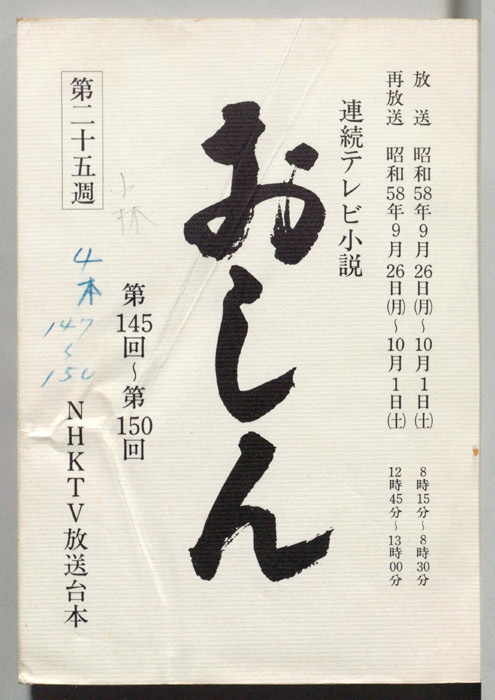 放送 昭和58年9月26日(月)～10月1日(土) 8時15分～8時30分
再放送 昭和58年9月26日(月)～10月1日(土) 12時45分～13時00分
連続テレビ小説
おしん
第145回～第150回
小林
第二十五週
4本
147
〜
150
NHKTV放送台本